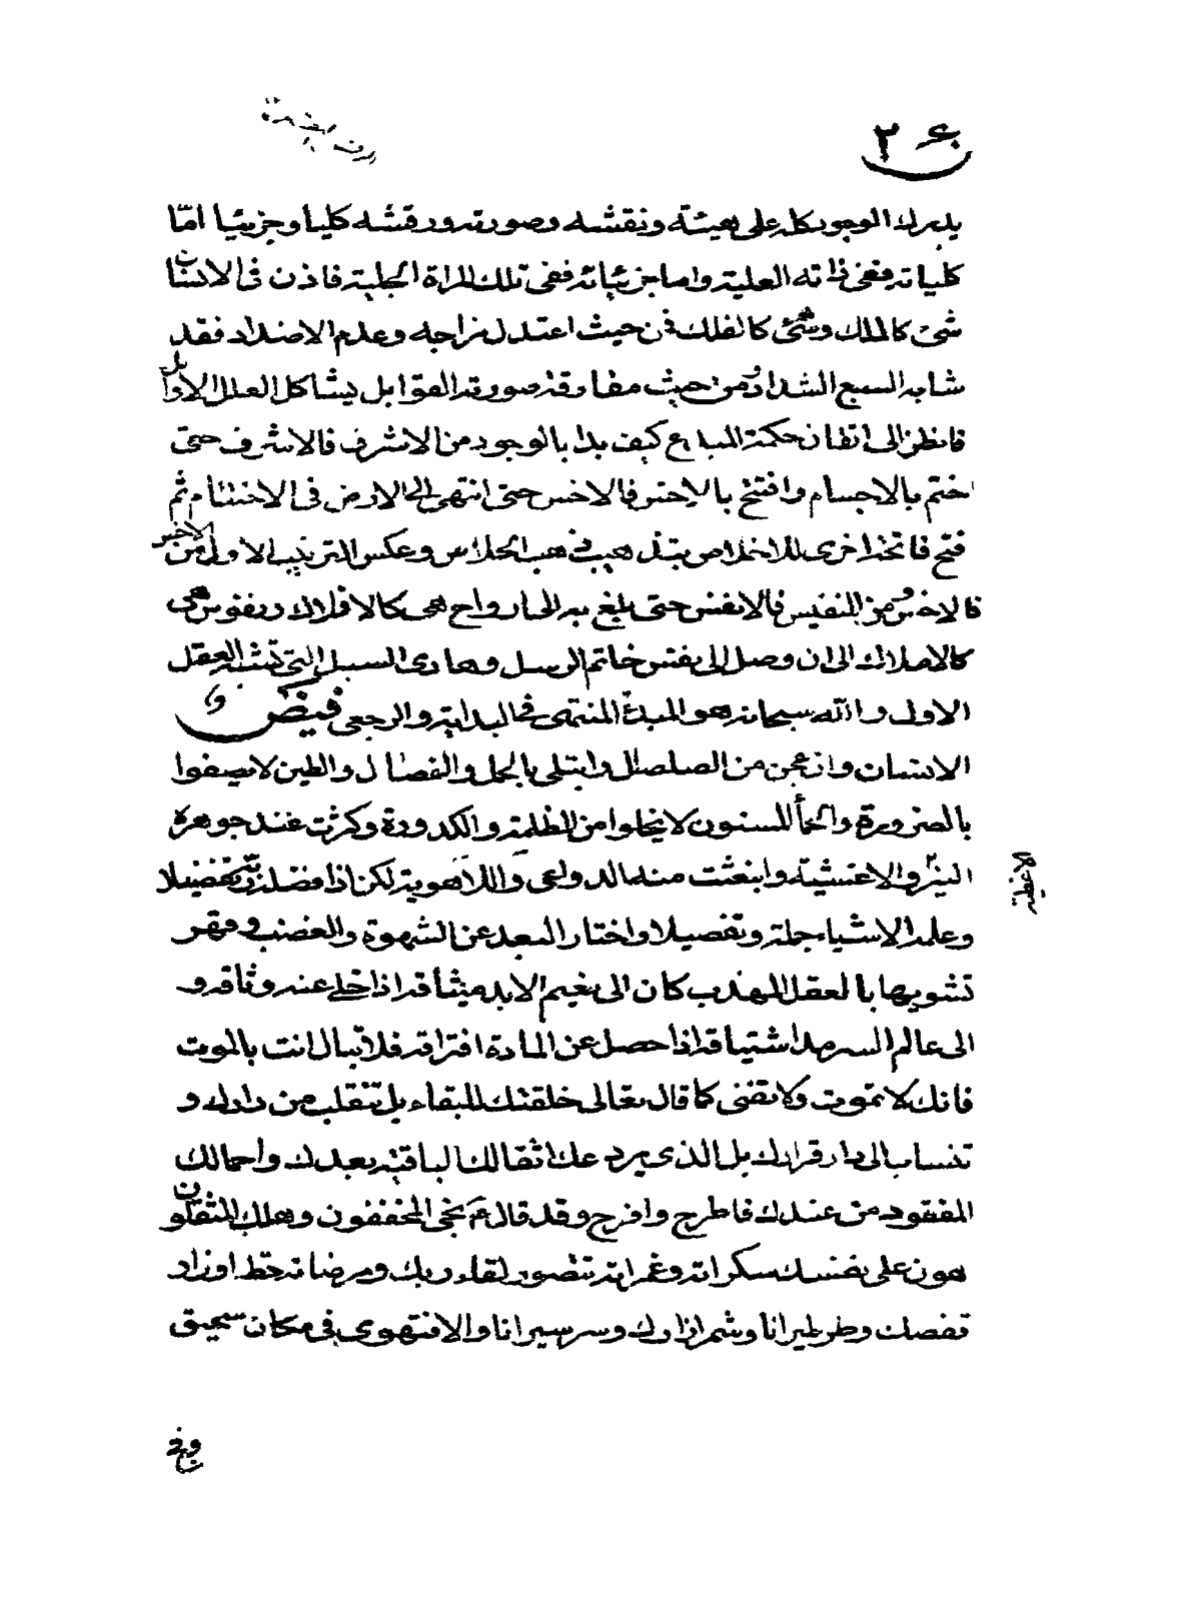 يدرك الوجود كله على هيئته ونقشه وصورته ورقشه كليا وجزئيا امّا
كلياته ففى ذاته العلية واما جزئياته ففى تلك المراة الجلية فاذن فى الانسان
شئ كالملك وشئ كالفلك فمن حيث اعتدل مزاجه وعدم الاضداد فقد
شابه السبع الشداد ومن حيث مفارقة صورته القوابل يشاكل العلل الاوايل
فانظر الى اتقان حكمة المبدع كيف بدا بالوجود من الاشرف فالاشرف حتى
ختم بالاجسام وافتتح بالاخس فالاخس حتى انتهى الى الارض فى الاختتام ثم
فتح فاتحة اخرى وعكس الترتيب الاول من الاخس
فالاخس ومن النفيس فالانفس حتى بلغ به الى ارواح هى كالافلاك ونفوس هى
كالاملاك الى ان وصل الى نفس خاتم الرسل وهادى السبل التى تشبه العقل
الاول والله سبحانه هو المبدئ المنتهى فى البداية والرجعى فيض و
الانسان وان عجن من الصلصال وابتلى بالحمل والفصال والطين لا يصفوا
بالضرورة والحمأ المسنون لا يخلوا من الظلمة والكدورة وكثرت عند جوهره
النير الاغشية وانبعثت منه الدواعى واللاهوية لكن اذا فضلته تفضيلا
وعلم الاشياء جملة وتفصيلا واختار البعد عن الشهوة والغضب وقهر
تشويها بالعقل المهذب كان الى نعيم الابد ميثاقه اذا خلى عنه وثاقه و
الى عالم السرمد اشتياقه اذا حصل عن المادة افتراقه فلا تبال انت بالموت
فانك لا تموت ولا تفنى كما قال تعالى خلقتك للبقاء بل تنقلب من دارك و
تنساب الى دار قرارك بل الذى يرد عنك اثقالك الباقية بعدك واحمالك
المفقود من عندك فاطرح وافرح وقد قال ع م نجى المخففون وهلك المثقلون
هون على نفسك سكراته وغمراته تتصور لقاء ربك ومرضاته حط اوزار
نفسك وطر طيرانا وشمر ازارك وسر سيرانا والا فتهوى فى مكان سحيق
الاغطية